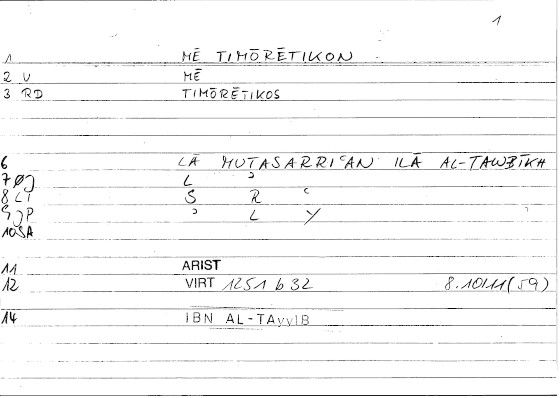 1
1 MĒ TIMŌRĒTIKON
2 U MĒ
3 RD TIMŌRĒTIKOS
6 LĀ MUTASARRIʿAN ILĀ AL-TAWBĪKH
7 ØJ L ʾ
8 LT S R ʿ
9 JP ʾ L Y
10 SA
11 ARIST
12 VIRT 1251 b 32 8.10/11 (59)
14 IBN AL-TAyyIB